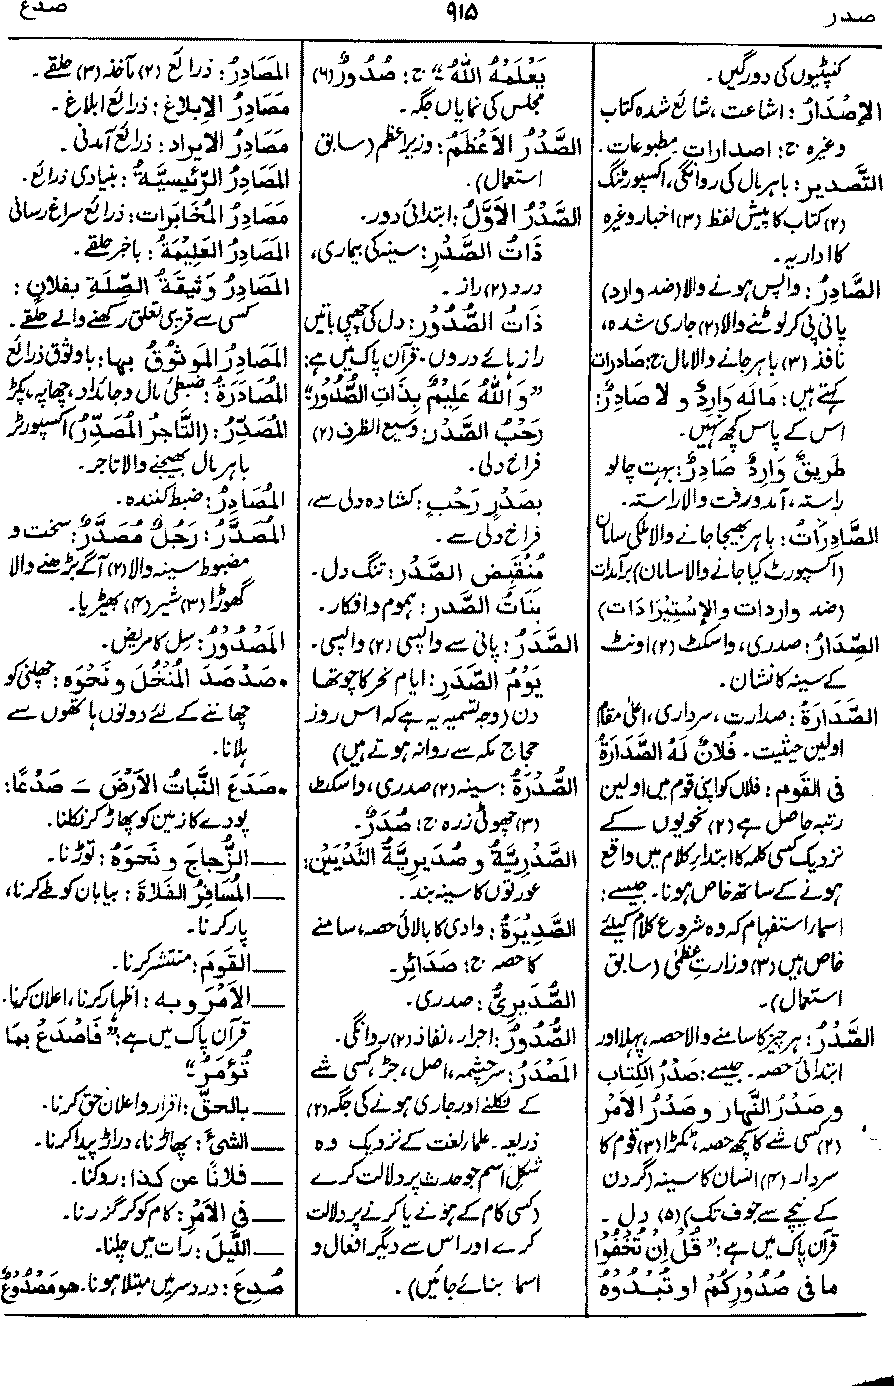 صدر
۹۱۵
صدع
کنپٹیوں کی دورگیں۔
الإصْدَارُ: اشاعت، شائع شدہ کتاب
وغیرہ ج: اصدارات مطبوعات۔
التَّصدیر: باہر مال کی روانگی، اکسپورٹنگ
(۲) کتاب کا پیش لفظ (۳) اخبار وغیرہ
کا اداریہ۔
الصَّادِرُ: واپس ہونے والا (ضد وارد)
پانی پی کر لوٹنے والا (۲) جاری شدہ،
نافذ (۳) باہر جانے والا مال ج: صَادِرات
کہتے ہیں: مَالَه وَارِدٌ و لا صَادِرٌ:
اس کے پاس کچھ نہیں۔
طَرِیقٌ وَارِدٌ صَادِرٌ: بہت چالو
راستہ، آمد ورفت والا راستہ۔
الصَّادِرَاتُ: باہر بھیجا جانے والا ملکی سامان
(اکسپورٹ کیا جانے والا سامان) برآمدات
(ضد واردات والإستِیْرَادَات)
الصِّدَارُ: صدری، واسکٹ (۲) اونٹ
کے سینہ کا نشان۔
الصَّدَارَةُ: صدارت، سرداری، اعلیٰ مقام
اولین حیثیت۔ فُلَانٌ لَهُ الصَّدَارَةُ
فی القَوم: فلاں کو اپنی قوم میں اولین
رتبہ حاصل ہے (۲) نحویوں کے
نزدیک کسی کلمہ کا ابتدارِ کلام میں واقع
ہونے کے ساتھ خاص ہونا۔ جیسے:
اسمار استفہام کہ وہ شروع کلام کیلئے
خاص ہیں (۳) وزارتِ عظمیٰ (سابق
استعمال)۔
الصَّدْرُ: ہر چیز کا سامنے والا حصہ، پہلا اور
ابتدائی حصہ۔ جیسے: صَدْرُ الکِتَاب
و صَدْرُ النَّهار و صَدْرُ الأمْر
(۲) کسی شے کا کچھ حصہ، ٹکڑا (۳) قوم کا
سردار (۴) انسان کا سینہ (گردن
کے نیچے سے جوف تک) (۵) دل۔
قرآن پاک میں ہے: "قُلْ إنْ تُخْفُوْا
ما فی صُدُوْرِکُمْ او تُبْدُوْهُ
یَعْلَمْهُ اللّٰهُ" ج: صُدُوْرٌ (۶)
مجلس کی نمایاں جگہ۔
الصَّدْرُ الأعْظَمُ: وزیر اعظم (سابق
استعمال)۔
الصَّدْرُ الأوَّلُ: ابتدائی دور۔
ذَاتُ الصَّدْرِ: سینہ کی بیماری،
درد (۲) راز۔
ذَاتُ الصُّدُوْر: دل کی چھپی باتیں
رازہائے دروں۔ قرآن پاک میں ہے:
"وَاللّٰهُ عَلِیْمٌ بِذَاتِ الصُّدُوْر"
رَحْبُ الصَّدْر: وسیع الظرف (۲)
فراخ دلی۔
بِصَدْرٍ رَحْبٍ: کشادہ دلی سے،
فراخ دلی سے۔
مُنْقَبِض الصَّدْر: تنگ دل۔
بَنَاتُ الصَّدر: ہموم و افکار۔
الصَّدَرُ: پانی سے واپسی (۲) واپسی۔
یَوْمُ الصَّدَرِ: ایام نحر کا چوتھا
دن (وجہ تسمیہ یہ ہے کہ اس روز
حجاج مکہ سے روانہ ہوتے ہیں)
الصُّدْرَةُ: سینہ (۲) صدری، واسکٹ
(۳) چھوٹی زرہ ج: صُدَرٌ۔
الصَّدْرِیَّةُ و صُدَیرِیَّةُ الثَّدْیَیْنِ:
عورتوں کا سینہ بند۔
الصَّدِیْرَةُ: وادی کا بالائی حصہ، سامنے
کا حصہ ج: صَدَائِر۔
الصُّدَیریُّ: صدری۔
الصُّدُوْرُ: اجرار، نفاذ (۲) روانگی۔
المَصْدَرُ: سرچشمہ، اصل، جڑ، کسی شے
کے نکلنے اور جاری ہونے کی جگہ (۲)
ذریعہ۔ علمار لغت کے نزدیک وہ
شکل اسم جو حدث پر دلالت کرے
(کسی کام کے ہونے یا کرنے پر دلالت
کرے اور اس سے دیگر افعال و
اسما بنائے جائیں)۔
المَصَادِرُ: ذرائع (۲) مآخذ (۳) حلقے۔
مَصَادِرُ الإبلاغ: ذرائع ابلاغ۔
مَصَادِرُ الایراد: ذرائع آمدنی۔
المَصَادِرُ الرَّئیسِیَّةُ: بنیادی ذرائع۔
مَصَادِرُ المُخَابَرات: ذرائع سراغ رسانی
المَصَادِرُ العَلِیْمَةُ: باخبر حلقے۔
المَصَادِرُ وَثِیقَةُ الصِّلَةِ بِفلانٍ:
کسی سے قریبی تعلق رکھنے والے حلقے۔
المَصَادِرُ المَوثُوْقُ بِها: باوثوق ذرائع
المُصَادَرَةُ: ضبطئ مال و جائداد، چھاپہ، پکڑ
المُصَدِّرُ: (التَّاجِرُ المُصَدِّرُ) اکسپورٹر
باہر مال بھیجنے والا تاجر۔
المُصَادِرُ: ضبط کنندہ۔
المُصَدَّرُ: رَجُلٌ مُصَدَّرٌ: سخت و
مضبوط سینہ والا (۲) آگے بڑھنے والا
گھوڑا (۳) شیر (۴) بھیڑیا۔
المَصْدُوْرُ: سِل کا مریض۔
• صَدْصَدَ المُنْخُلَ و نَحْوَه: چھلنی کو
چھاننے کے لئے دونوں ہاتھوں سے
ہلانا۔
• صَدَعَ النَّباتُ الأرْضَ ـَ صَدْعًا:
پودے کا زمین کو پھاڑ کر نکلنا۔
ــــ الزُّجاجَ و نَحوَهُ: توڑنا۔
ــــ المُسَافِرُ الفَلَاةَ: بیابان کو طے کرنا،
پار کرنا۔
ــــ القَومَ: منتشر کرنا۔
ــــ الأمْرَ وبِه: اظہار کرنا، اعلان کرنا۔
قرآن پاک میں ہے: "فَاصْدَعْ بِمَا
تُؤْمَرُ"
ــــ بالحقّ: اقرار و اعلان حق کرنا۔
ــــ الشیءَ: پھاڑنا، دراڑ پیدا کرنا۔
ــــ فلانًا عن کذا: روکنا۔
ــــ فی الأمْرِ: کام کو کر گزرنا۔
ــــ اللَّیلَ: رات میں چلنا۔
صُدِعَ: درد سر میں مبتلا ہونا۔ هو مَصْدُوْعٌ